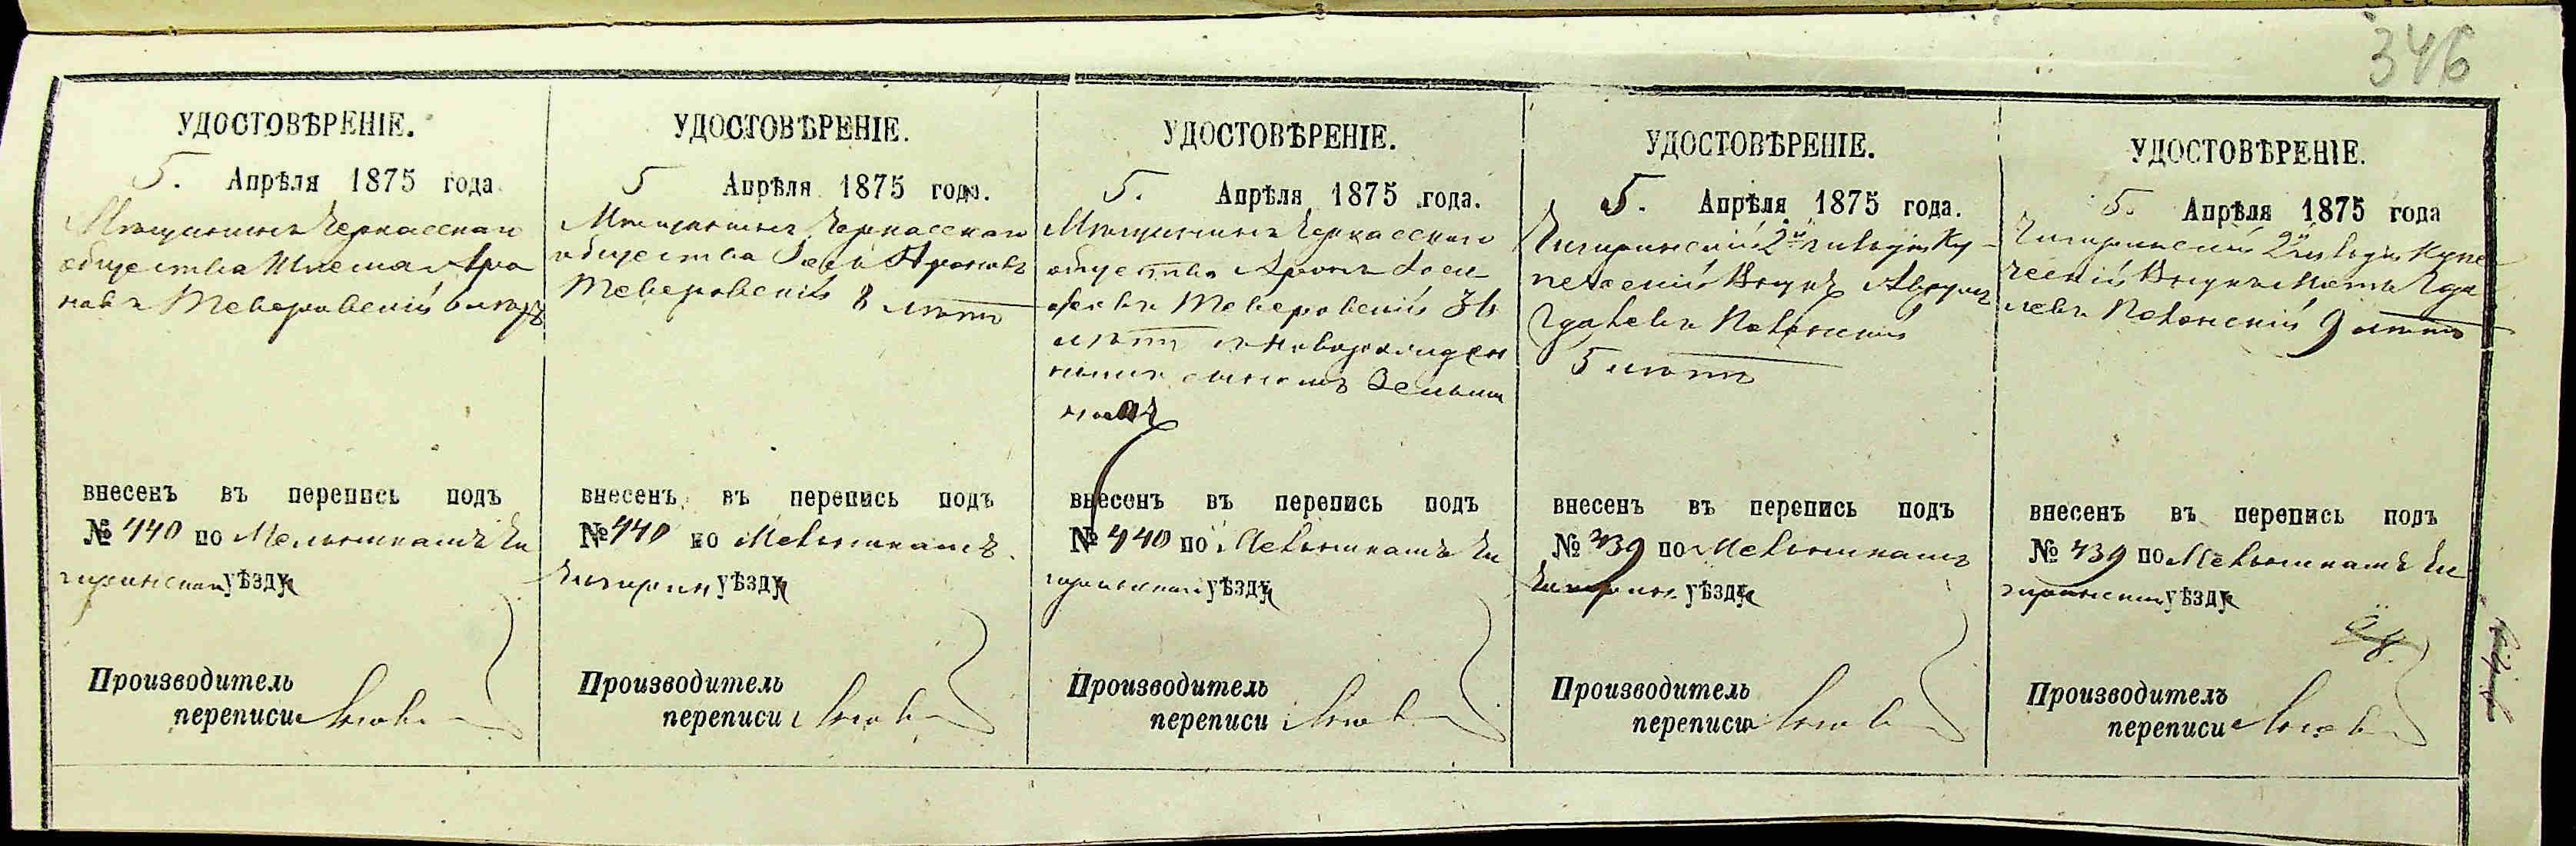 346
УДОСТОВѢРЕНІЕ.
5. Апрѣля 1875 года
Мѣщанинъ Черкасскаго
общества Шлема Аро
новъ Теверовскій 6 лѣтъ
внесенъ въ перепись подъ
№ 440 по Мельникамъ Чи
гиринскому уѣзду
Производитель
переписи
УДОСТОВѢРЕНІЕ.
5 Апрѣля 1875 года.
Мѣщанинъ Черкасскаго
общества Іось Ароновъ
Теверовскій 8 лѣтъ
внесенъ въ перепись подъ
№ 440 по Мельникамъ
Чигирин уѣзду
Производитель
переписи
УДОСТОВѢРЕНІЕ.
5. Апрѣля 1875 года.
Мѣщанинъ Черкасскаго
общества Аронъ Іосі
овъ Теверовскій 36
лѣтъ новорожден
нымъ сыномъ Зельма
номъ
внесенъ въ перепись подъ
№ 440 по Мельникамъ Чи
гиринскому уѣзду
Производитель
переписи
УДОСТОВѢРЕНІЕ.
5. Апрѣля 1875 года.
Чигиринскій 2й гильдіи Ку-
печескій Внукъ Аврумъ
5 лѣтъ
внесенъ въ перепись подъ
№ 439 по Мельникамъ
Чигирин. уѣзду
Производитель
переписи
УДОСТОВѢРЕНІЕ.
5. Апрѣля 1875 года
Чигиринскій 2й гильдіи Купе
ческій Внукъ
9 лѣтъ
внесенъ въ перепись подъ
№ 439 по Мельникамъ Чи
гиринскому уѣзду
Производитель
переписи